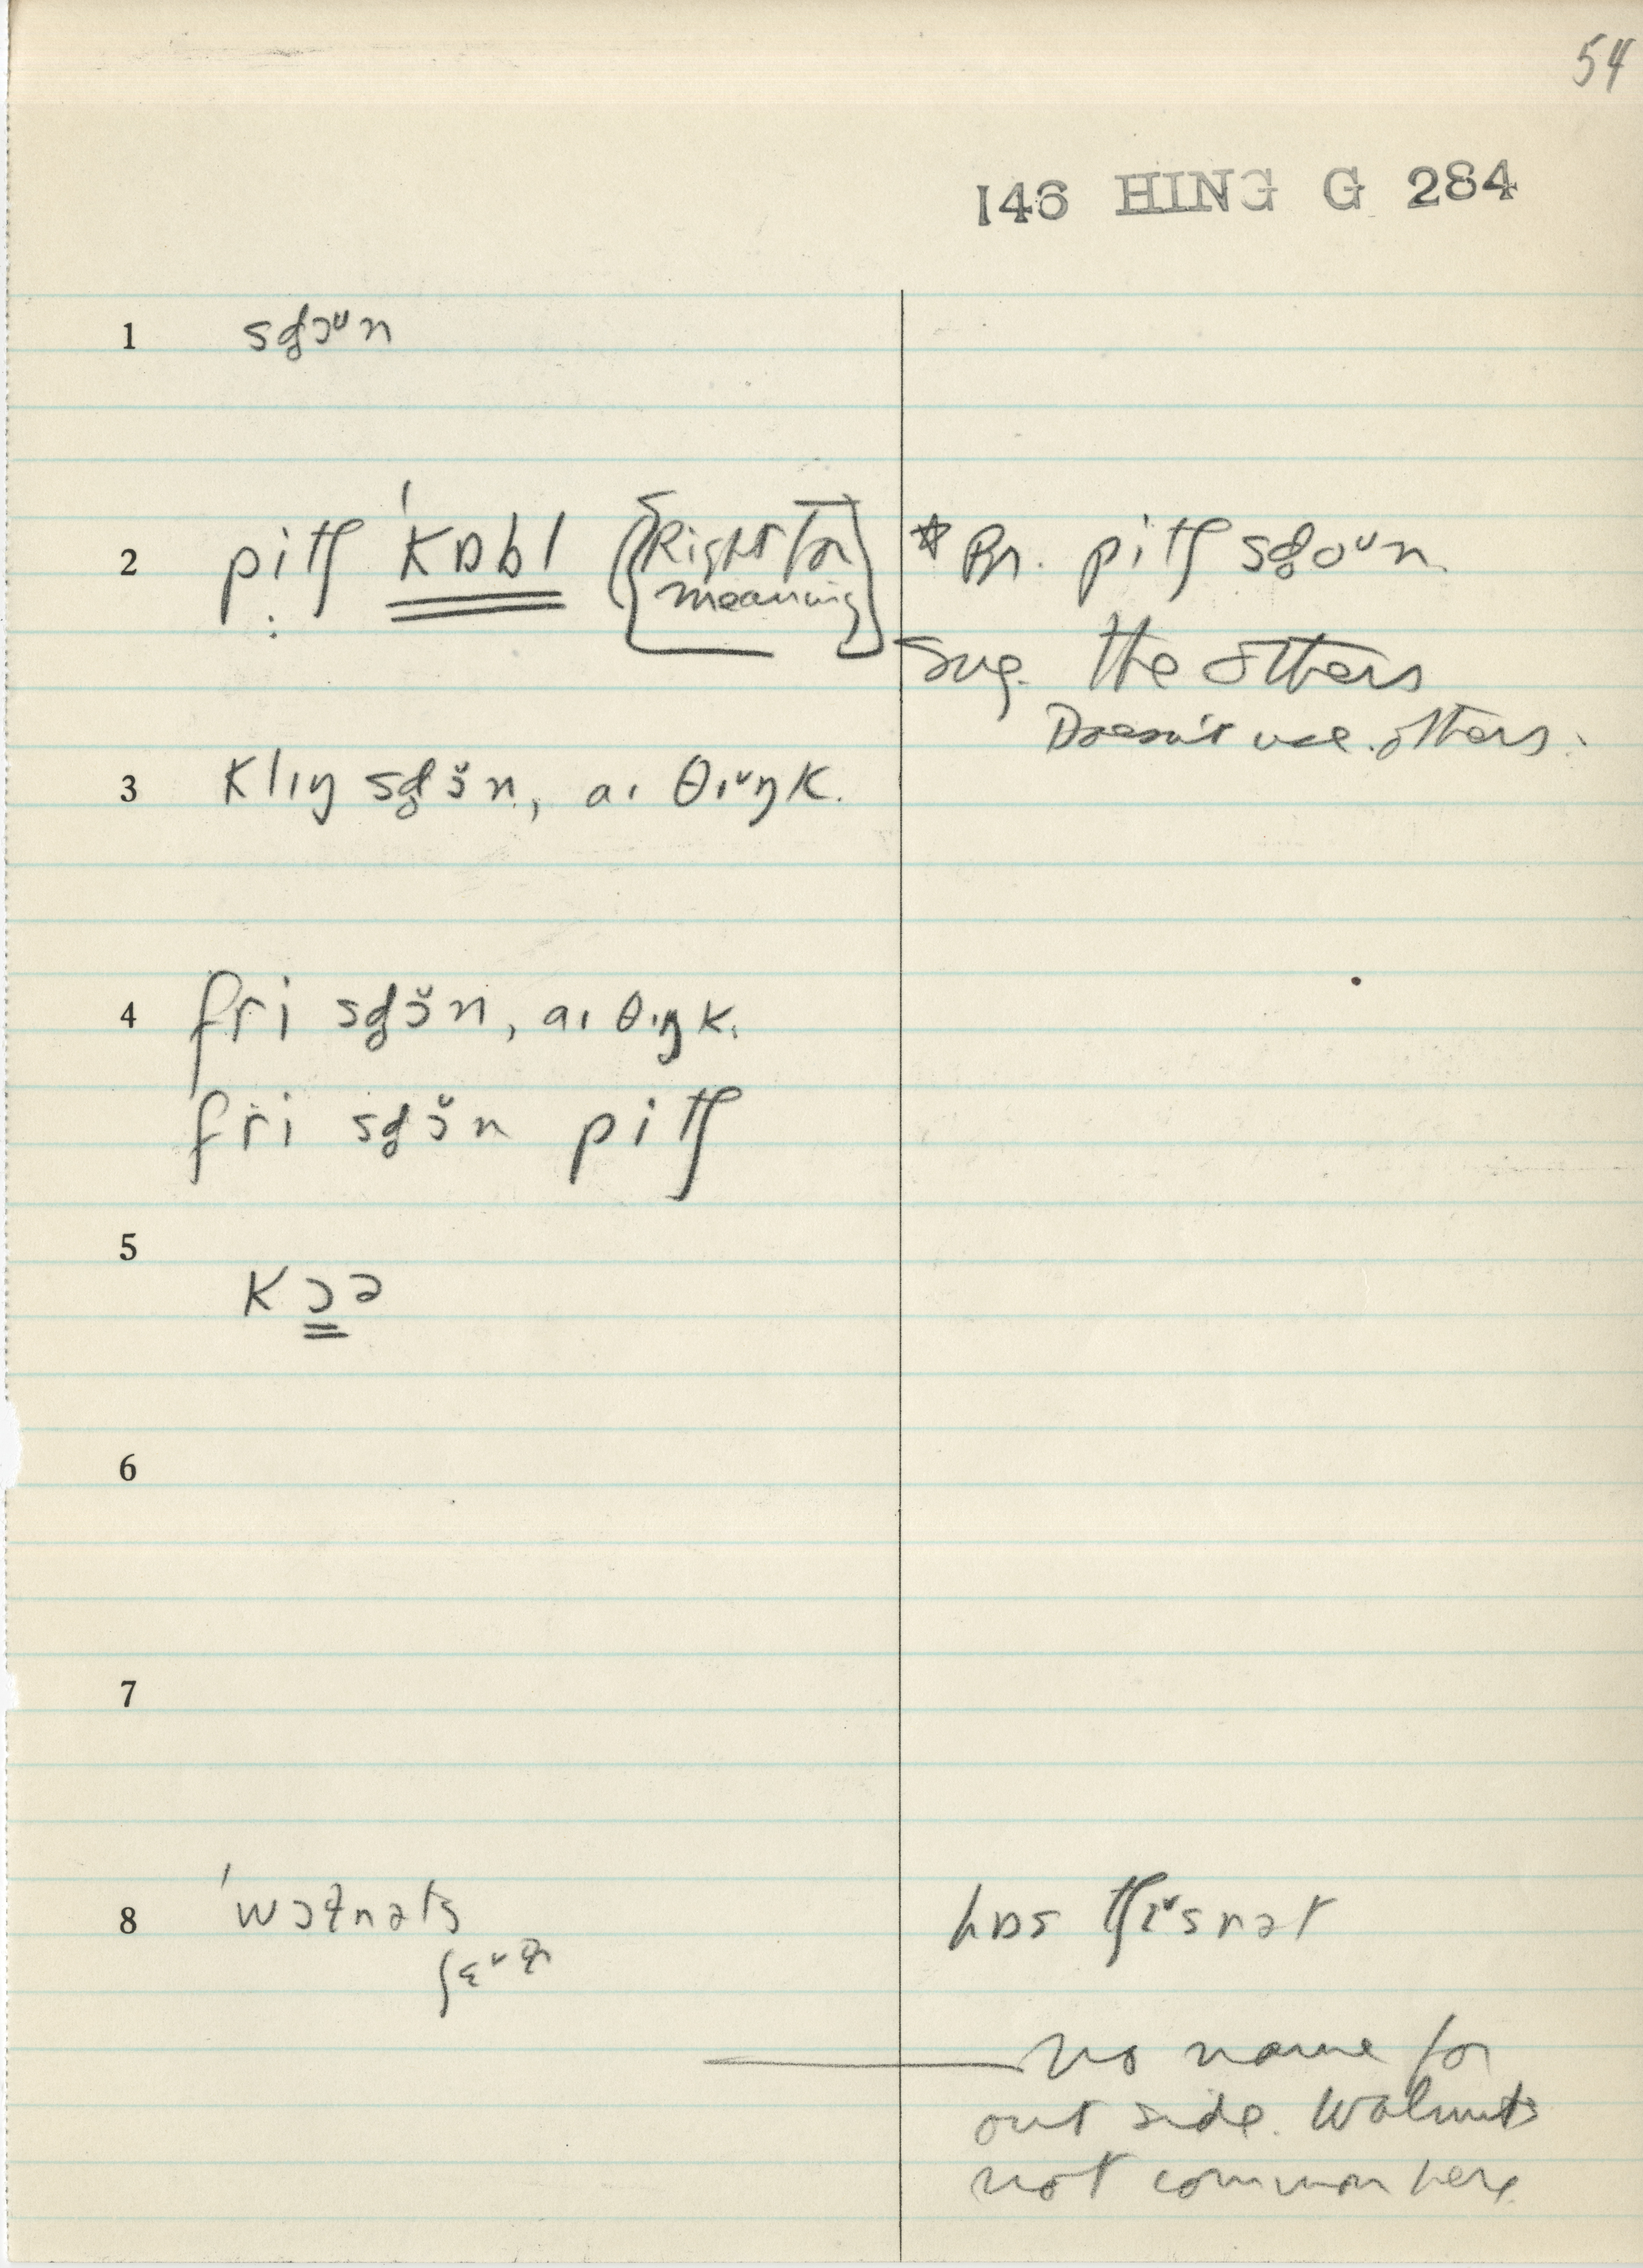 54
146 HING G 284
1 sɡ̊ɔᵕn
2 pitʃ ˈkɒbl [Right for
meaning]
* Pr. pitʃ sɡ̊oᵕn.
Sug. the others
Doesn't use others.
3 klɪŋ sɡ̊ɔ̆n, aɪ θɪᵕŋk.
4 fri sɡ̊ɔ̆n, aɪ θɪŋk.
fri sɡ̊ɔ̆n pitʃ
5 kɔə
6
7
8 ˈwɔɫnəts
hɒs tʃɪᵕsnət
No name for
out side. Walnuts
not common here